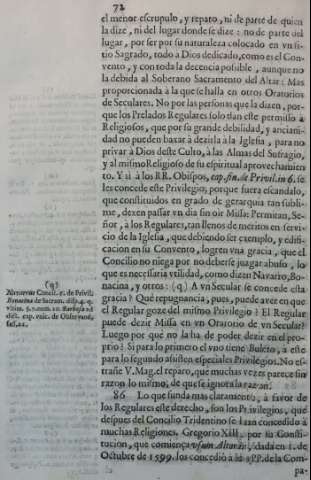 72
el menor escrupulo, y reparo, ni de parte de quien
la dize, ni del lugar donde se dize: no de parte del
lugar, por ser por su naturaleza colocado en vn si-
tio Sagrado, todo a Dios dedicado, como es el Con-
vento, y con toda la decencia possible, aunque no
la debida al Soberano Sacramento del Altar: Mas
proporcionada à la que se halla en otros Oratorios
de Seculares. No por las personas que la dizen, por-
que los Prelados Regulares solo dàn este permisso à
Religiosos, que por su grande debilidad, y anciani-
dad no pueden baxar à dezirla à la Iglesia, para no
privar à Dios deste Culto, à las Almas del Sufragio,
y al mismo Religioso de su espiritual aprovechamien-
to. Y si à los RR. Obispos, cap. fin. de Privil. in 6. se
les concede este Privilegio, porque fuera escandalo,
que constituidos en grado de gerarquia tan subli-
me, dexen passar vn dia sin oir Missa: Permitan, Se-
ñor, à los Regulares, tan llenos de meritos en servi-
cio de la Iglesia, que debiendo ser exemplo, y edifi-
cacion en su Convento, logren vna gracia, que el
Concilio no niega por no deberse juzgar abuso, lo
que es necessaria vtilidad, como dizen Navarro, Bo-
nacina, y otros: (q) A vn Secular se concede esta
gracia? Què repugnancia, pues, puede aver en que
el Regular goze del mismo Privilegio? El Regular
puede dezir Missa en vn Oratorio de vn Secular?
Luego por què no la ha de poder dezir en el pro-
prio? Si para lo primero el vno tiene Buleto, a este
para lo segundo assisten especiales Privilegios. No es-
trañe V. Mag. el reparo, que muchas vezes parece sin
razon lo mismo, de que se ignora la razon.
(q)
Navarrus Concil. de Privil.
Bonacina de Sacram. disp. 4. q.
86 Lo que funda mas claramente, à favor de
los Regulares este derecho, son los Privilegios, que
despues del Concilio Tridentino se han concedido à
muchas Religiones. Gregorio XIII. por su Consti-
tucion, que comiença vsum Altaris, dada en 1. de
Octubre de 1599. los concediò a los PP. de la Com-
pa-